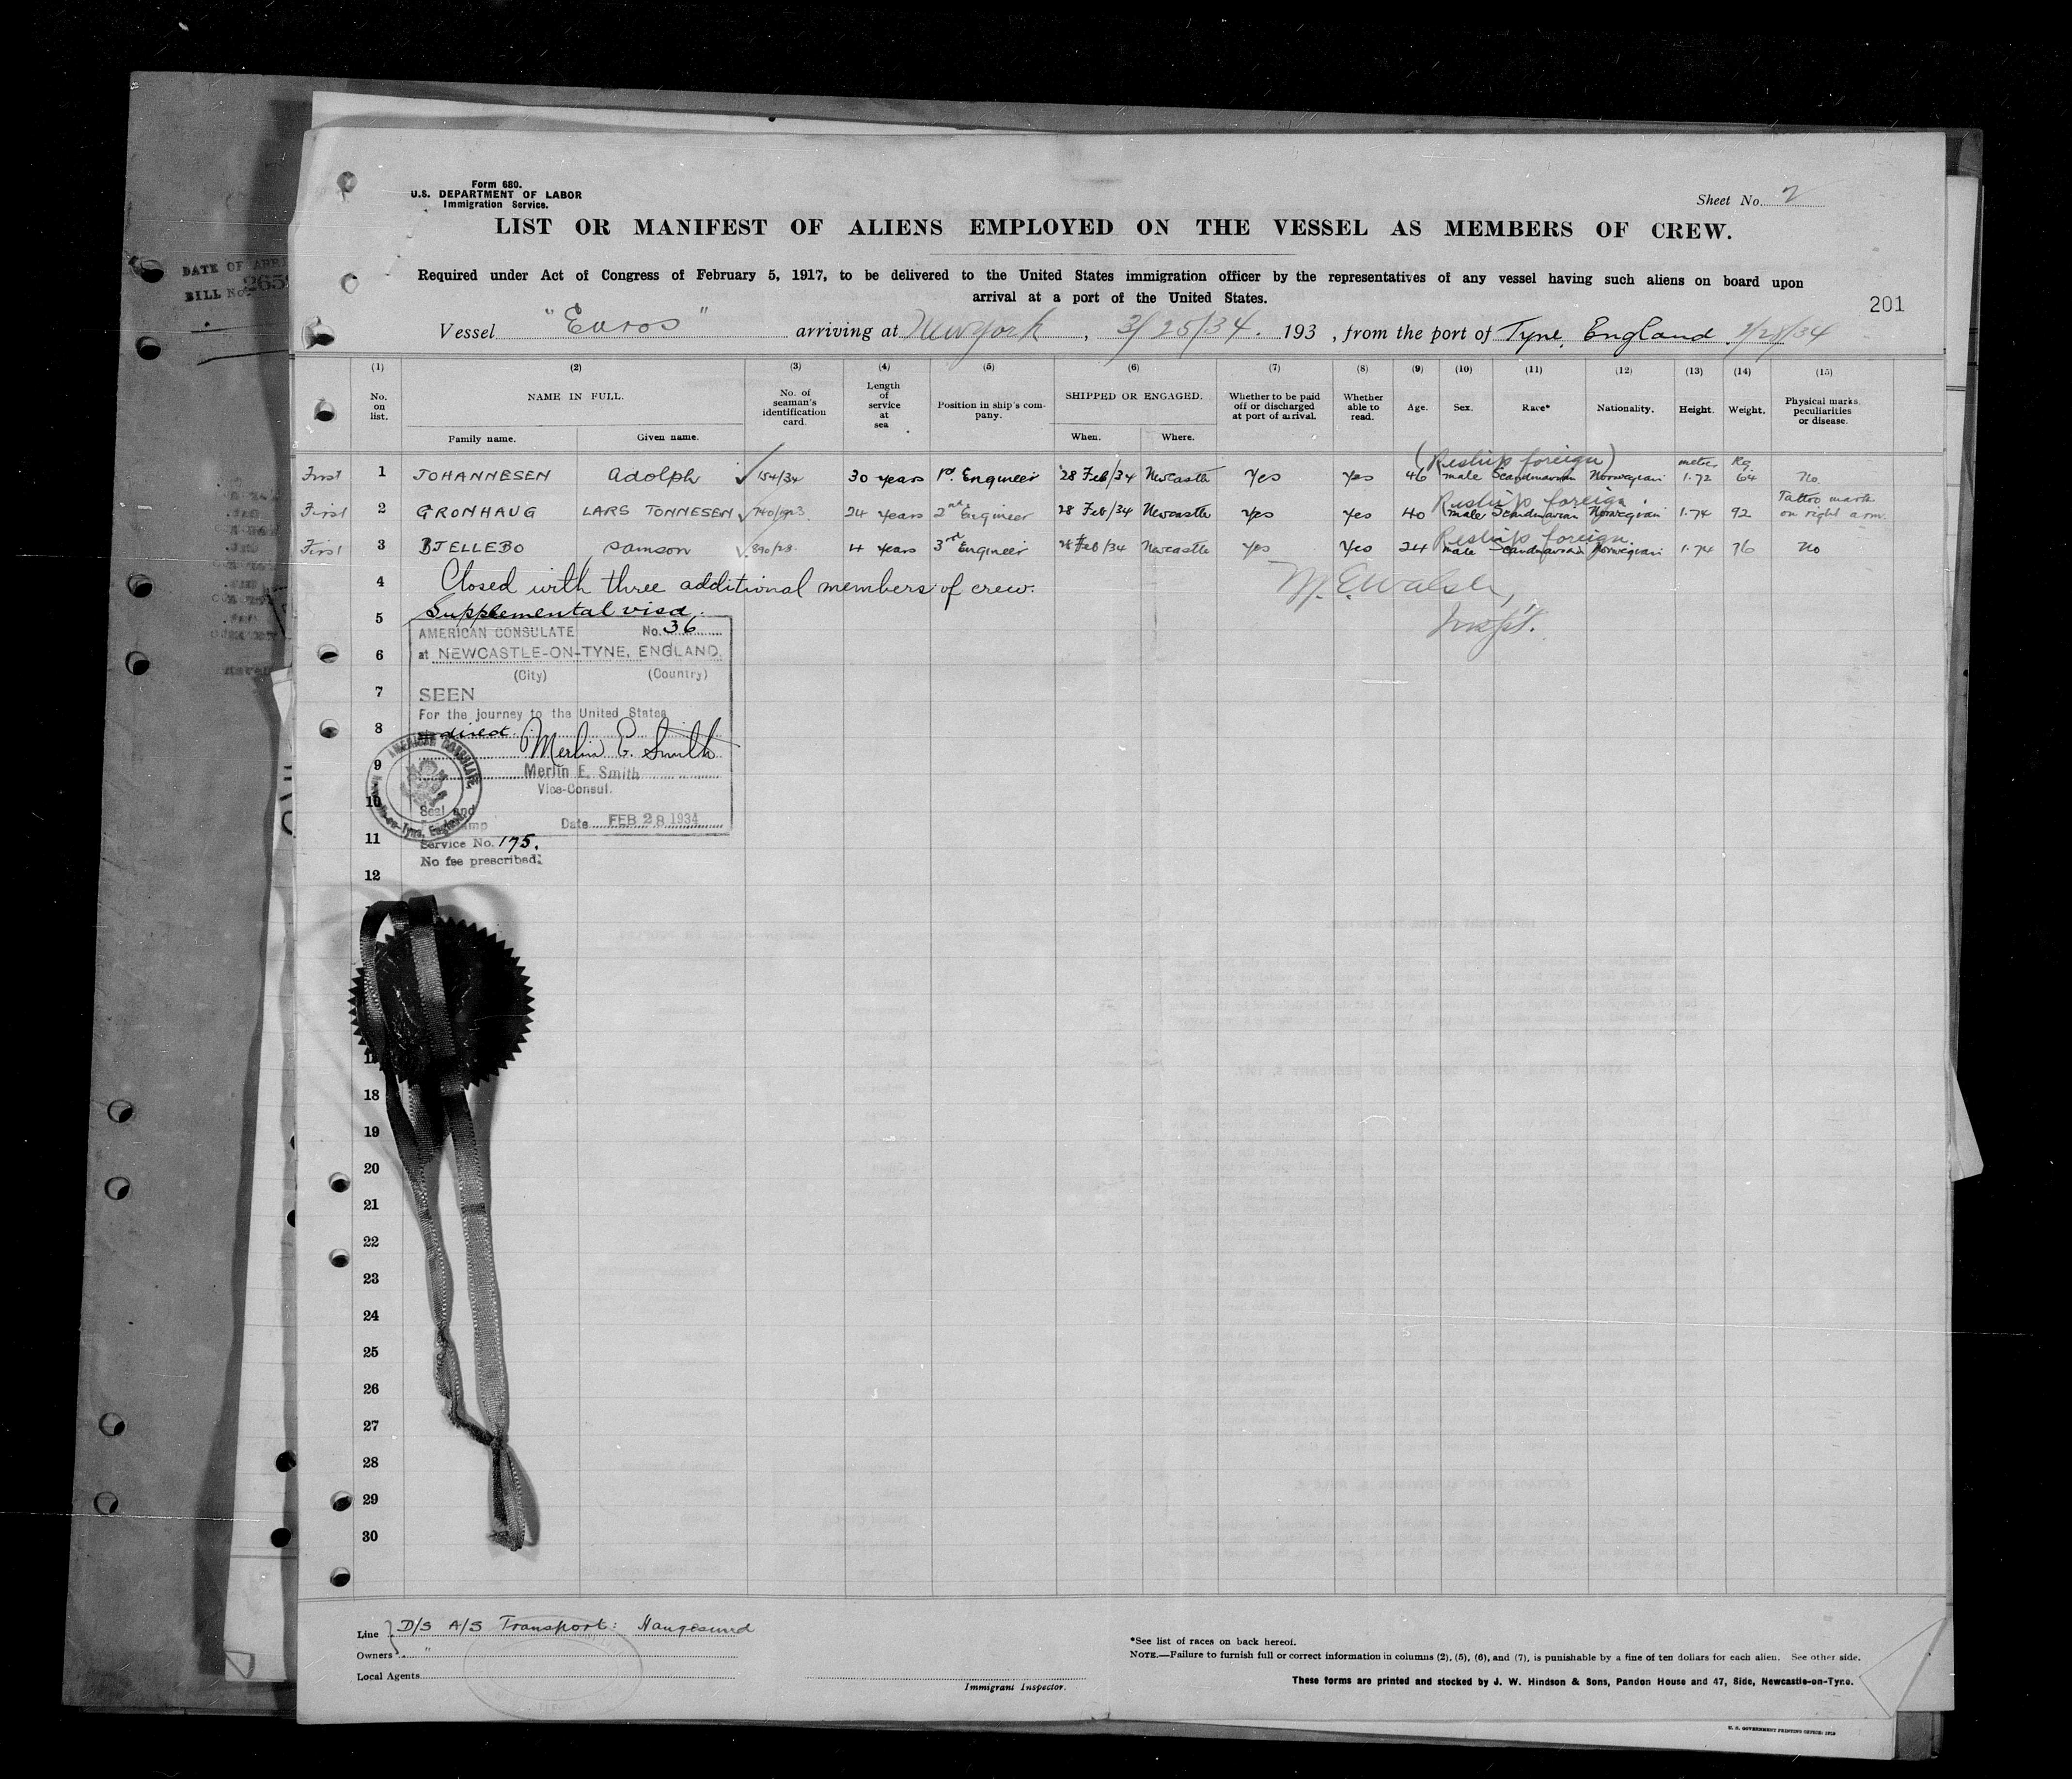 DATE OF ARRI
BILL No. 265
Form 680.
U.S. DEPARTMENT OF LABOR
Immigration Service.
Sheet No. 2
LIST OR MANIFEST OF ALIENS EMPLOYED ON THE VESSEL AS MEMBERS OF CREW.
Required under Act of Congress of February 5, 1917, to be delivered to the United States immigration officer by the representatives of any vessel having such aliens on board upon
arrival at a port of the United States.
201
Vessel "Euros" arriving at New York, 3/25/34. 193 , from the port of Tyne, England. 2/28/34
(1) (2) (3) (4) (5) (6) (7) (8) (9) (10) (11) (12) (13) (14) (15)
No. on list. NAME IN FULL. No. of seaman's identification card. Length of service at sea Position in ship's company. SHIPPED OR ENGAGED. Whether to be paid off or discharged at port of arrival. Whether able to read. Age. Sex. Race* Nationality. Height. Weight. Physical marks, peculiarities or disease.
Family name. Given name. When. Where.
(Reship foreign) metres Kg
First 1 JOHANNESEN Adolph ✓ 154/34 30 years 1st. Engineer 28 Feb/34 Newcastle Yes Yes 46 male Scandinavian Norwegian 1.72 64 No
Reship foreign. Tattoo mark
First 2 GRONHAUG LARS TONNESEN ✓ 740/1923 24 years 2nd Engineer 28 Feb/34 Newcastle Yes Yes 40 male Scandinavian Norwegian 1.74 92 on right arm.
Reship foreign.
First 3 BJELLEBO Samson ✓ 890/28 4 years 3rd Engineer 28 Feb/34 Newcastle Yes Yes 24 male Scandinavian Norwegian 1.74 76 No
4 Closed with three additional members of crew. M. E. Walsh,
5 Supplemental visa. Insp't.
AMERICAN CONSULATE No. 36
6 at NEWCASTLE-ON-TYNE, ENGLAND.
(City) (Country)
7 SEEN
For the journey to the United States
8 direct. Merlin E. Smith
9 Merlin E. Smith
Vice-Consul.
AMERICAN CONSULATE, Newcastle-on-Tyne, England
10 Seal and
Stamp Date FEB 28 1934
11 Service No. 175.
No fee prescribed.
12
18
19
20
21
22
23
24
25
26
27
28
29
30
Line D/S A/S Transport: Haugesund
Owners "
Local Agents
Immigrant Inspector.
*See list of races on back hereof.
NOTE.—Failure to furnish full or correct information in columns (2), (5), (6), and (7), is punishable by a fine of ten dollars for each alien. See other side.
These forms are printed and stocked by J. W. Hindson & Sons, Pandon House and 47, Side, Newcastle-on-Tyne.
U. S. GOVERNMENT PRINTING OFFICE: 1918